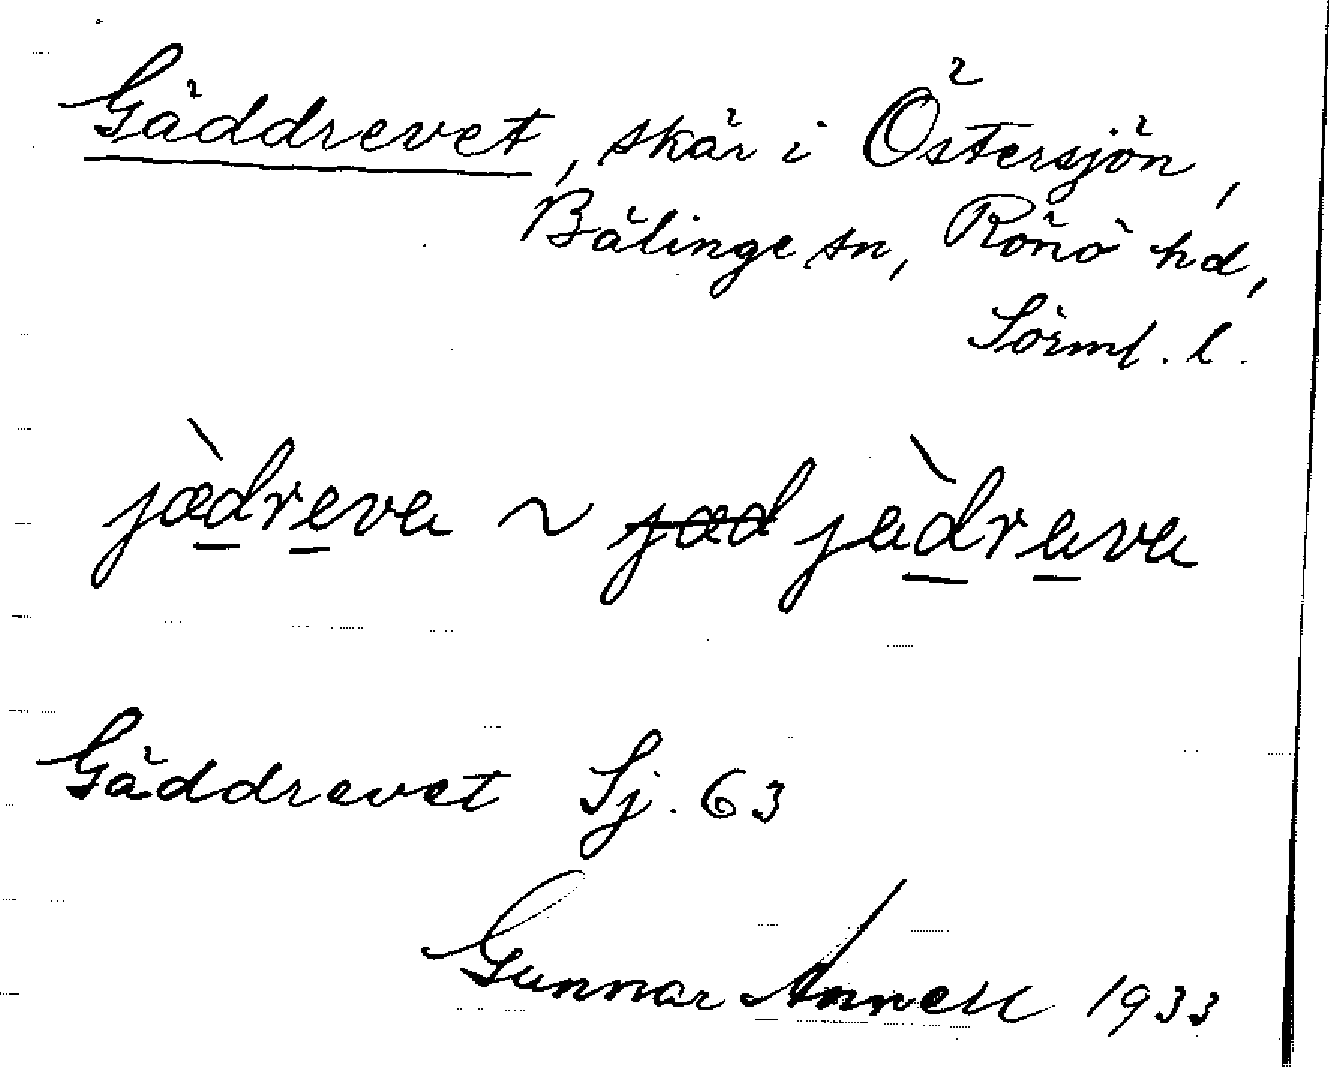 Gäddrevet, skär i Östersjön,
Bälinge sn, Rönö hd,
Sörml. l.
jæ̀dreva ~ jàdrava
Gäddrevet Sj. 63
Gunnar Annell 1933